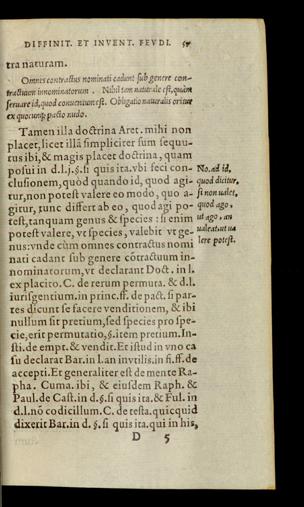 DIFFINIT. ET INVENT. FEVDI. 57
tra naturam.
Omnes contractus nominati cadunt sub genere con-
tractuum innominatorum. Nihil tam naturale est, quàm
seruare id, quod conuentum est. Obligatio naturalis oritur
ex quocunq; pacto nudo.
Tamen illa doctrina Aret. mihi non
placet, licet illã simpliciter sum sequu-
tus ibi, & magis placet doctrina, quam
posui in d.l.j.§. si quis ita. vbi feci con-
clusionem, quòd quando id, quod agi-
tur, non potest valere eo modo, quo a-
gitur, tunc differt ab eo, quod agi po-
test, tanquam genus & species: si enim
potest valere, vt species, valebit vt ge-
nus: vnde cùm omnes contractus nomi
nati cadant sub genere cõtractuum in-
nominatorum, vt declarant Doct. in l.
ex placito. C. de rerum permuta. & d.l.
iurisgentium. in princ. ff. de pact. si par-
tes dicunt se facere venditionem, & ibi
nullum sit pretium, sed species pro spe-
cie, erit permutatio, §. item pretium. In-
sti. de empt. & vendit. Et istud in vno ca
su declarat Bar. in l. an invtilis. in fi. ff. de
accepti. Et generaliter est de mente Ra-
pha. Cuma. ibi, & eiusdem Raph. &
Paul. de Cast. in d. §. si quis ita. & Ful. in
d.l. nõ codicillum. C. de testa. quicquid
dixerit Bar. in d. §. si quis ita. qui in his,
D 5
No. ad id,
quod dicitur,
si non ualet,
quod ago,
ut ago, an
ualeat, ut ua
lere potest.